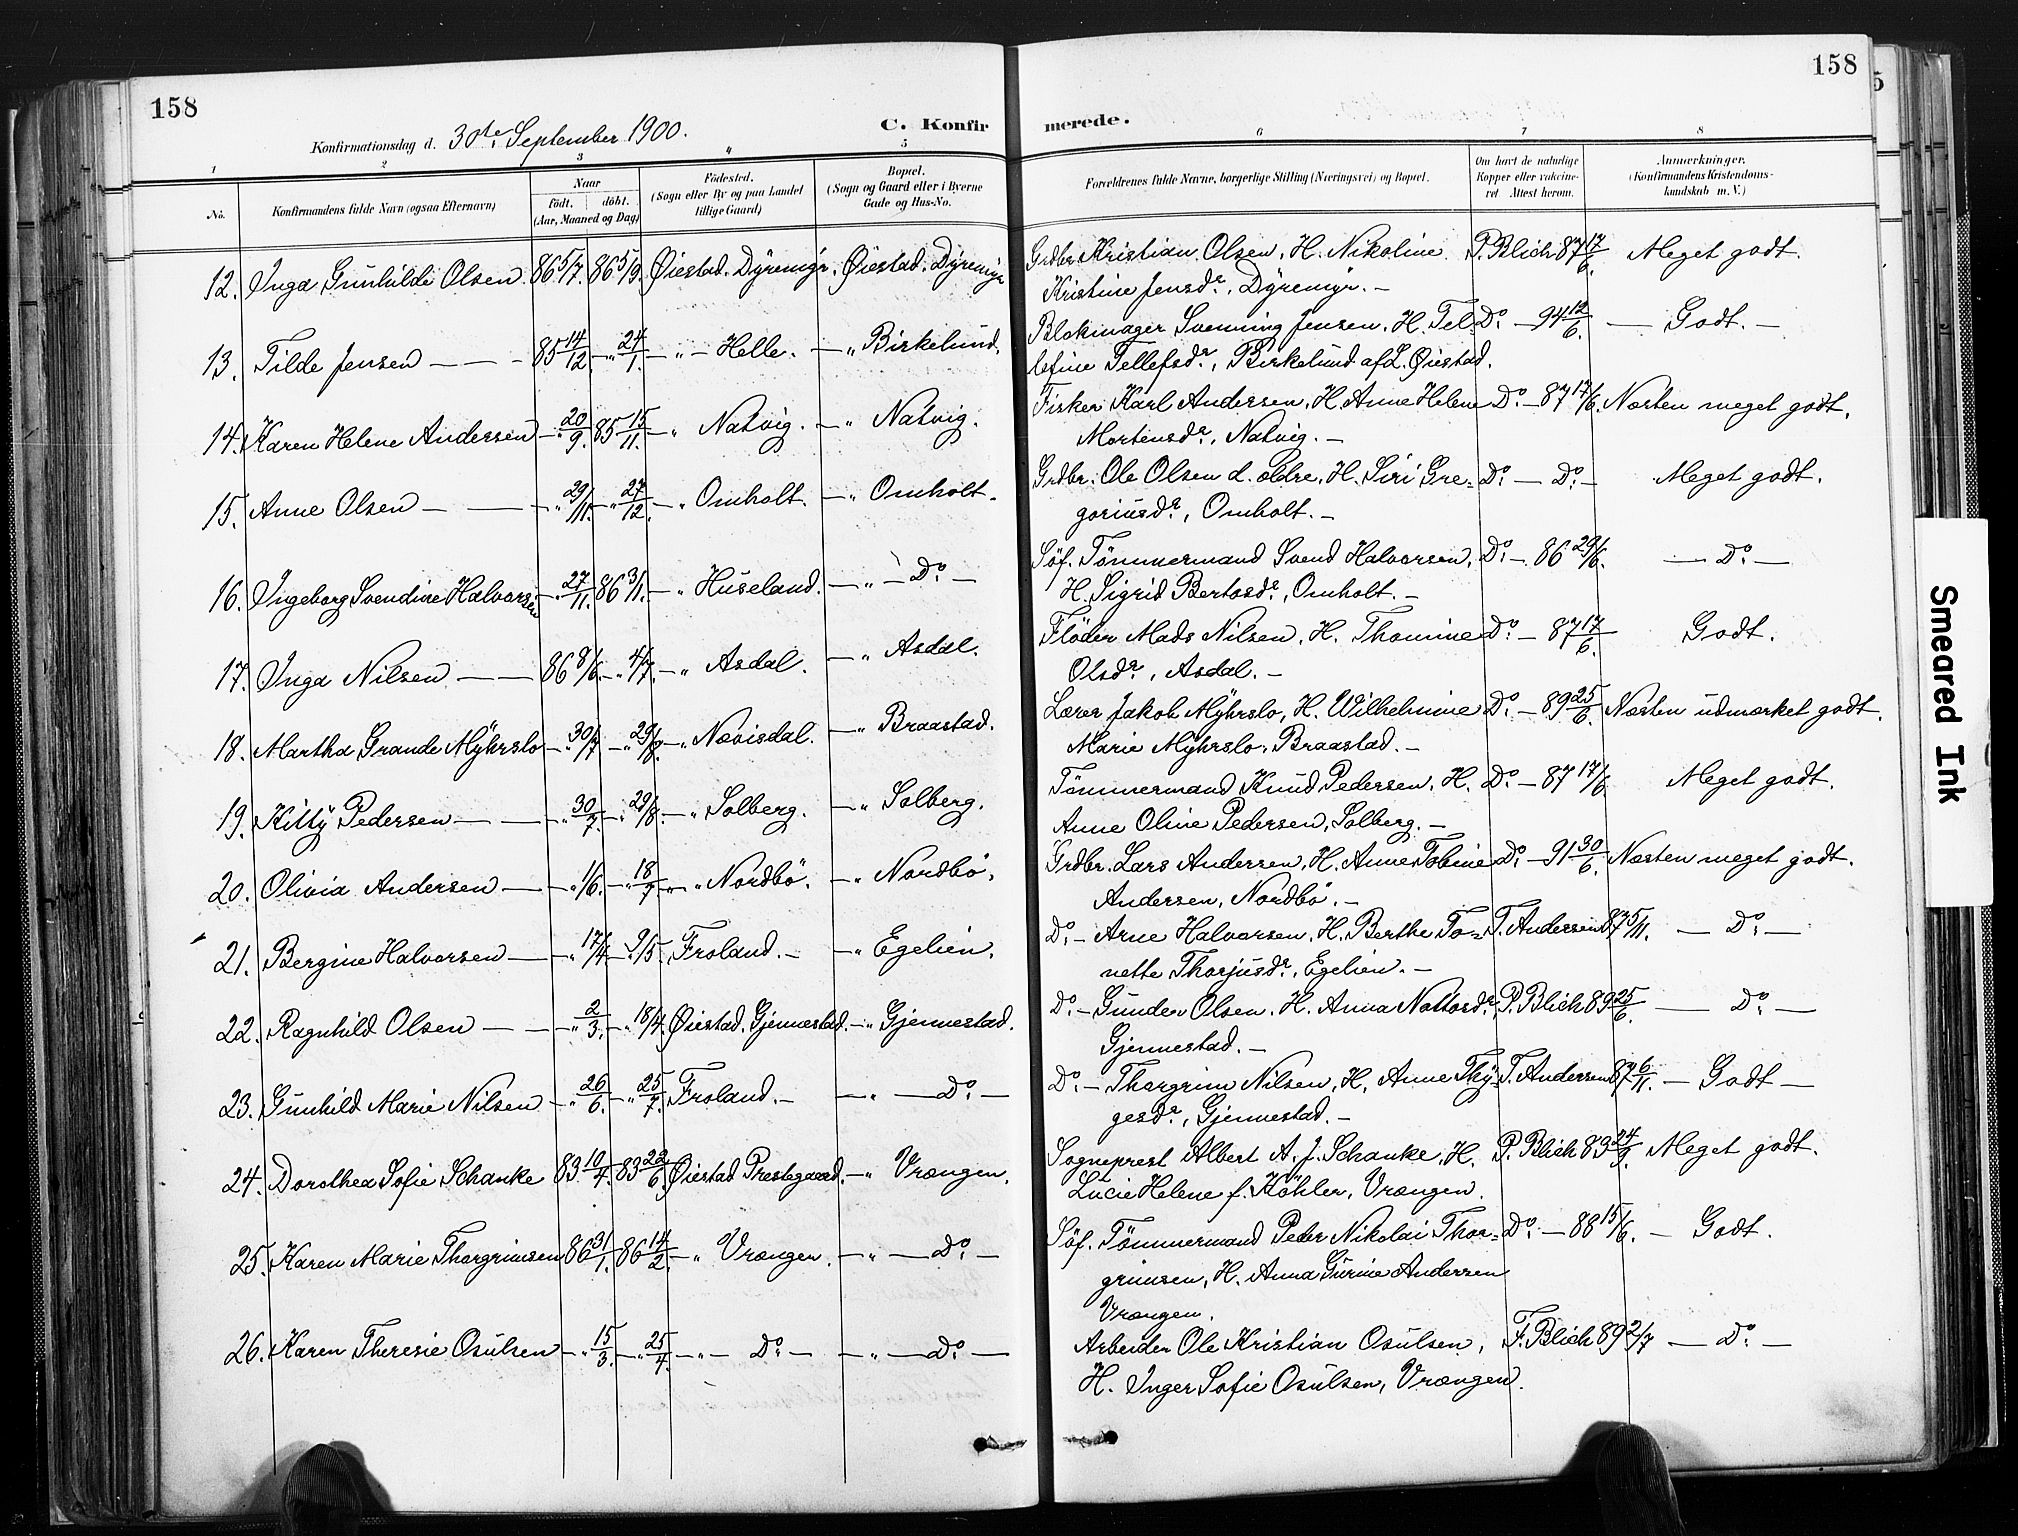 158
158
5
Konfirmationsdag d. 30te September 1900.
C. Konfir
merede.
1 2 3 4 5 6 7 8
No.
Konfirmandens fulde Navn (ogsaa Efternavn)
Naar
født. døbt.
(Aar, Maaned og Dag)
Fødested.
(Sogn eller By og paa Landet
tillige Gaard)
Bopæl.
(Sogn og Gaard eller i Byerne
Gade og Hus-No.
Forældrenes fulde Navne, borgerlige Stilling (Næringsvei) og Bopæl.
Om havt de naturlige
Kopper eller vakcine-
ret Attest herom.
Anmærkninger.
(Konfirmandens Kristendoms-
kundskab m. V.)
12. Inga Gunhilde Olsen. 86 5/7. 86 5/9. Øiestad. Dyremyr. Øiestad. Dyremyr Grdbr. Kristian Olsen, H. Nikoline P. Blich 87 17/6. Meget godt.
Kristine Jensdr., Dyremyr. —
13. Tilde Jensen — — - 85 14/12 — „ 24/1. — „ — Helle. — „ Birkelund. Blokmager Svenning Jensen, H. Tel- Do. — 94 12/6. — Godt. —
lefine Tellefsdr., Birkelund af L. Øiestad.
14. Karen Helene Andersen — „ 20/9. 85 15/11. — „ Natvig. — „ Natvig. Fisker Karl Andersen, H. Anne Helene Do. — 87 17/6. Næsten meget godt.
Mortensdr., Natvig. —
15. Anne Olsen — — — „ 29/11. — „ 27/12. — „ Omholt. — „ Omholt. Grdbr. Ole Olsen d. ældre, H. Siri Gre= Do. — Do. — Meget godt.
goriusdr., Omholt. —
16. Ingeborg Svendine Halvorsen — „ 27/11. 86 3/1. — „ Huseland. — „ — Do. — Söf. Tömmermand Svend Halvorsen, Do. — 86 29/6. — Do. —
H. Sigrid Bertosdr., Omholt. —
17. Inga Nilsen — — 86 8/6. — „ 4/7. — „ Asdal. — „ Asdal. Flöder Mads Nilsen, H. Thomine Do. — 87 17/6. Godt.
Olsdr., Asdal. —
18. Martha Grande Myhrslo — „ 30/7 — „ 29/8. — „ Nævisdal. — „ Braastad. Lærer Jakob Myhrslo, H. Wilhelmine Do. — 89 25/6. Næsten udmærket godt.
Marie Myhrslo, Braastad. —
19. Kitty Pedersen — — — „ 30/7. — „ 29/8. — „ Solberg. — „ Solberg. Tömmermand Knud Pedersen, H. Do. — 87 17/6 Meget godt.
Anne Oline Pedersen, Solberg. —
20. Olivia Andersen — — „ 1/6. — „ 18/7 — „ Nordbö. — „ Nordbö. Grdbr. Lars Andersen, H. Anne Tobine Do. — 91 30/6. Næsten meget godt.
Andersen, Nordbö. —
21. Bergine Halvorsen — — „ 17/4. — „ 9/5. Froland. — — „ Egelien. Do. — Arne Halvorsen, H. Berthe To= T. Andersen 87 5/11. — Do. —
nette Thorjusdr., Egelien. —
22. Ragnhild Olsen — — „ 2/3. — „ 18/4. Øiestad. Gjennestad. — „ Gjennestad. Do. — Gunder Olsen, H. Anna Nottosdr., P. Blich 89 25/6. — Do. —
Gjennestad. —
23. Gunhild Marie Nilsen — „ 26/6. — „ 25/7. Froland. — — „ — Do. — Do. — Thorgrim Nilsen, H. Anne Thy- T. Andersen 87 6/11. — Godt —
gesdr., Gjennestad. —
24. Dorothea Sofie Schanke 83 10/4. 83 22/6. Øiestad Prestegaard. — „ Vrængen. Sogneprest Albert A. J. Schanke, H. P. Blich 89 24/9. Meget godt.
Lucie Helene f. Köhler, Vrængen.
25. Karen Marie Thorgrimsen 86 31/1. 86 14/2. — „ Vrængen. — „ — Do. — Söf. Tömmermand Peder Nikolai Thor= Do. — 88 15/6. — Godt.
grimsen, H. Anna Gurine Andersen
Vrængen.
26. Karen Theresie Osulsen — „ 15/3. — „ 25/4. — „ — Do. — — „ — Do. — Arbeider Ole Kristian Osulsen, F. Blich 89 2/7 — Do. —
H. Inger Sofie Osulsen, Vrængen.
Smeared Ink